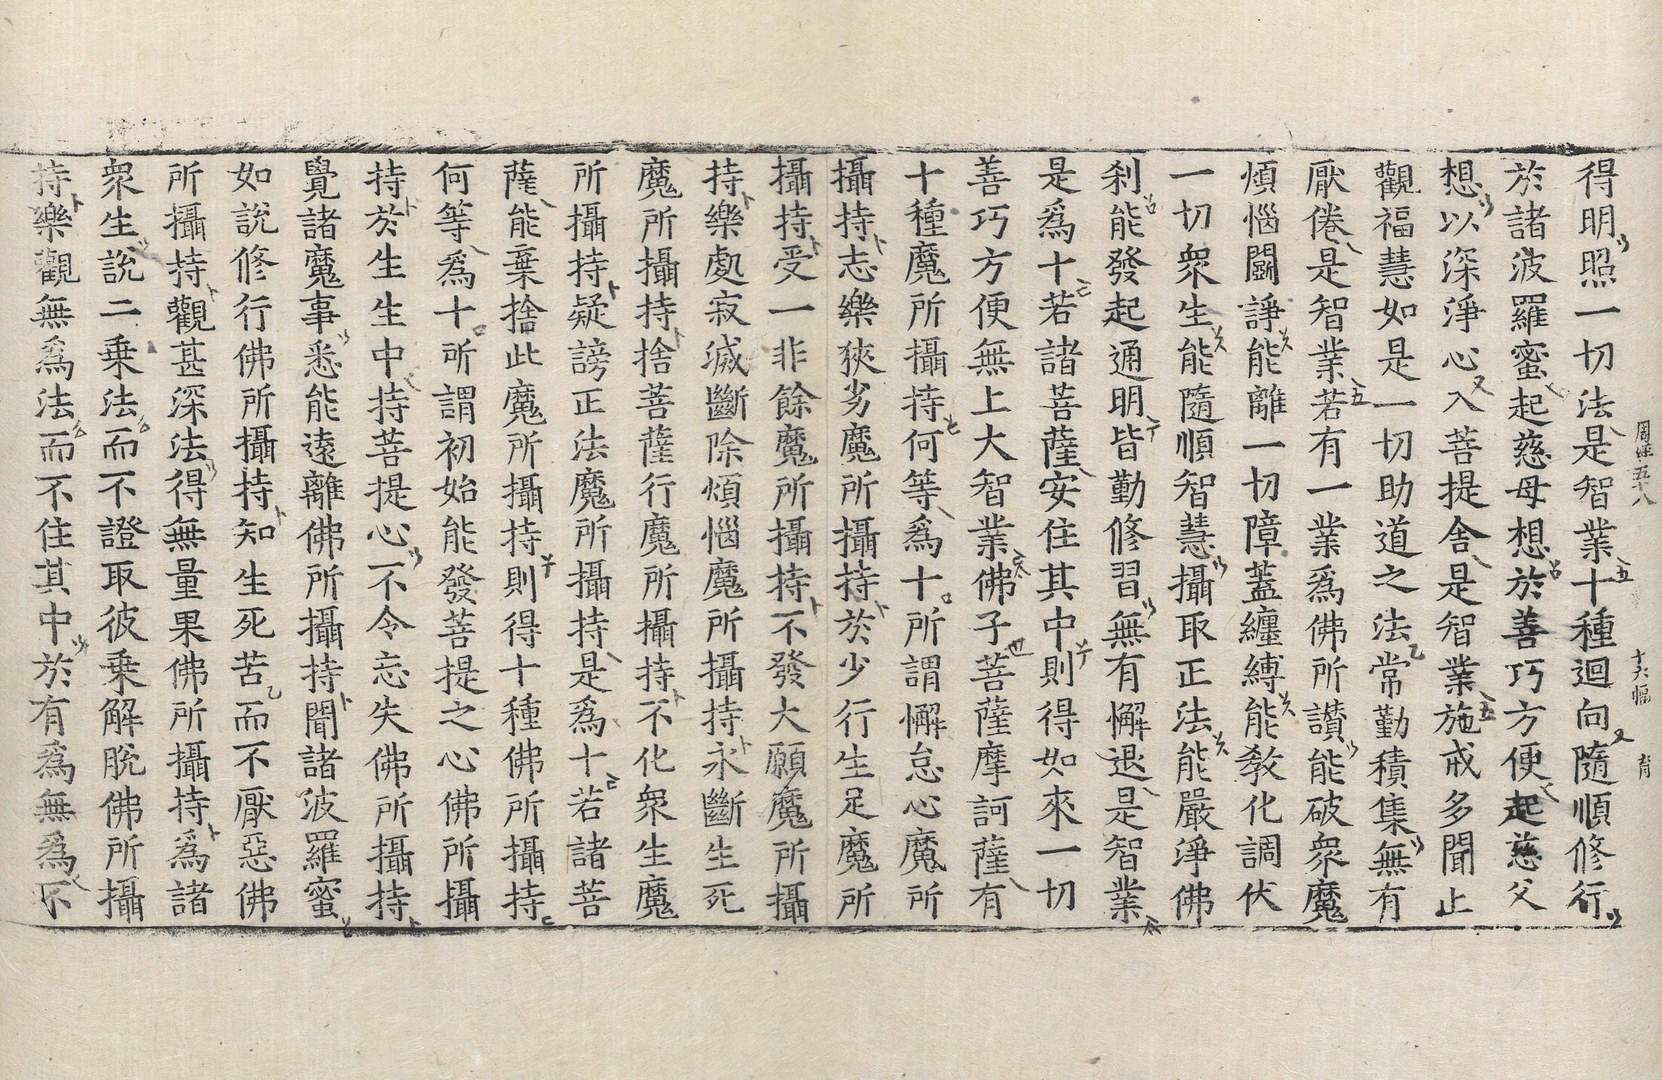 得明照一切法是智業十種迴向隨順修行
於諸波羅蜜起慈母想於善巧方便起慈父
想以深淨心入菩提舍是智業施戒多聞止
觀福慧如是一切助道之法常勤積集無有
厭倦是智業若有一業爲佛所讃能破衆魔
煩惱鬪諍能離一切障蓋纏縛能教化調伏
一切衆生能隨順智慧攝取正法能嚴淨佛
刹能發起通明皆勤修習無有懈退是智業
是爲十若諸菩薩安住其中則得如來一切
善巧方便無上大智業佛子菩薩摩訶薩有
十種魔所攝持何等爲十所謂懈怠心魔所
攝持志樂狹劣魔所攝持於少行生足魔所
攝持受一非餘魔所攝持不發大願魔所攝
持樂處寂滅斷除煩惱魔所攝持永斷生死
魔所攝持捨菩薩行魔所攝持不化衆生魔
所攝持疑謗正法魔所攝持是爲十若諸菩
薩能棄捨此魔所攝持則得十種佛所攝持
何等爲十所謂初始能發菩提之心佛所攝
持於生生中持菩提心不令忘失佛所攝持
覺諸魔事悉能遠離佛所攝持聞諸波羅蜜
如說修行佛所攝持知生死苦而不厭惡佛
所攝持觀甚深法得無量果佛所攝持爲諸
衆生說二乗法而不證取彼乗解脫佛所攝
持樂觀無爲法而不住其中於有爲無爲不